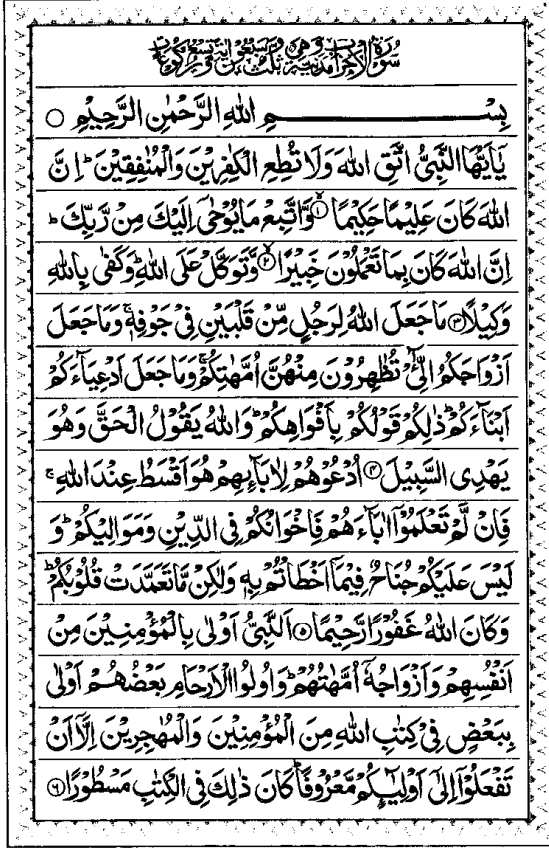 سورة الاحزاب مدنية وهي ثلث وسبعون اية وتسع ركوعات
بِسْمِ اللهِ الرَّحْمٰنِ الرَّحِيْمِ ○
يٰۤاَيُّهَا النَّبِيُّ اتَّقِ اللهَ وَلَا تُطِعِ الْكٰفِرِيْنَ وَالْمُنٰفِقِيْنَ ؕ اِنَّ
اللهَ كَانَ عَلِيْمًا حَكِيْمًا ۙ۱ وَّاتَّبِعْ مَا يُوْحٰۤى اِلَيْكَ مِنْ رَّبِّكَ ؕ
اِنَّ اللهَ كَانَ بِمَا تَعْمَلُوْنَ خَبِيْرًا ۙ۲ وَّتَوَكَّلْ عَلَى اللهِ ؕ وَكَفٰى بِاللهِ
وَكِيْلًا ۳ مَا جَعَلَ اللهُ لِرَجُلٍ مِّنْ قَلْبَيْنِ فِيْ جَوْفِهٖ ۚ وَمَا جَعَلَ
اَزْوَاجَكُمُ الّٰٓـِٔيْ تُظٰهِرُوْنَ مِنْهُنَّ اُمَّهٰتِكُمْ ۚ وَمَا جَعَلَ اَدْعِيَآءَكُمْ
اَبْنَآءَكُمْ ؕ ذٰلِكُمْ قَوْلُكُمْ بِاَفْوَاهِكُمْ ؕ وَاللهُ يَقُوْلُ الْحَقَّ وَهُوَ
يَهْدِى السَّبِيْلَ ۴ اُدْعُوْهُمْ لِاٰبَآئِهِمْ هُوَ اَقْسَطُ عِنْدَ اللهِ ۚ
فَاِنْ لَّمْ تَعْلَمُوْۤا اٰبَآءَهُمْ فَاِخْوَانُكُمْ فِى الدِّيْنِ وَمَوَالِيْكُمْ ؕ وَ
لَيْسَ عَلَيْكُمْ جُنَاحٌ فِيْمَاۤ اَخْطَاْتُمْ بِهٖ وَلٰكِنْ مَّا تَعَمَّدَتْ قُلُوْبُكُمْ ؕ
وَكَانَ اللهُ غَفُوْرًا رَّحِيْمًا ۵ اَلنَّبِيُّ اَوْلٰى بِالْمُؤْمِنِيْنَ مِنْ
اَنْفُسِهِمْ وَاَزْوَاجُهٗۤ اُمَّهٰتُهُمْ ؕ وَاُولُوا الْاَرْحَامِ بَعْضُهُمْ اَوْلٰى
بِبَعْضٍ فِيْ كِتٰبِ اللهِ مِنَ الْمُؤْمِنِيْنَ وَالْمُهٰجِرِيْنَ اِلَّاۤ اَنْ
تَفْعَلُوْۤا اِلٰۤى اَوْلِيٰٓئِكُمْ مَّعْرُوْفًا ؕ كَانَ ذٰلِكَ فِى الْكِتٰبِ مَسْطُوْرًا ۶